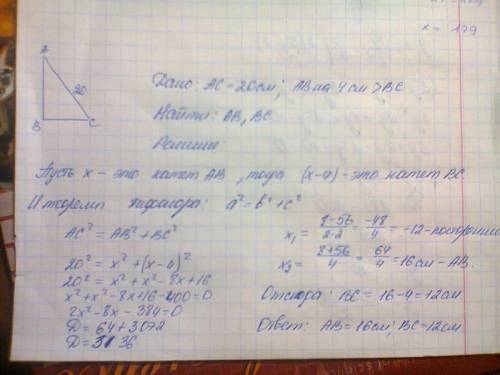 x = 179
A
20
B
C
Дано: AC = 20см; AB на 4 см > BC
Найти: AB, BC
Решение:
Пусть x - это катет AB, тогда (x-4) - это катет BC
И теорема пифагора: a² = b² + c²
AC² = AB² + BC²
20² = x² + (x-4)²
20² = x² + x² - 8x + 16
x² + x² - 8x + 16 - 400 = 0
2x² - 8x - 384 = 0
D = 64 + 3072
D = 3136
x₁ = 8-56 / 2·2 = -48 / 4 = -12 -
x₂ = 8+56 / 4 = 64 / 4 = 16см - AB.
Отсюда: BC = 16-4 = 12см.
Ответ: AB = 16см; BC = 12см.